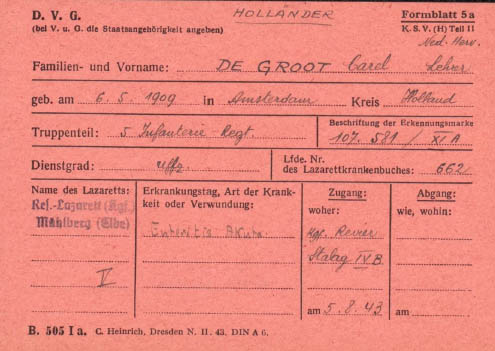 D. V. G. HOLLÄNDER Formblatt 5a
(bei V. u. G. die Staatsangehörigkeit angeben) K. S. V. (H) Teil II
Ned. Herv.
Familien- und Vorname: DE GROOT Carel Lehrer
geb. am 6. 5. 1909 in Amsterdam Kreis Holland
Truppenteil: 5 Infanterie Regt. Beschriftung der Erkennungsmarke
107. 581 / XI A
Dienstgrad: Uffz Lfde. Nr.
des Lazarettkrankenbuches: 662
Name des Lazaretts: Erkrankungstag, Art der Krank- Zugang: Abgang:
Res.-Lazarett (Kgf.) heit oder Verwundung: woher: wie, wohin:
Mühlberg (Elbe)
Akuta Kgf. Revier
Stalag IV B
V
am 5. 8. 43 am
B. 505 I a. C. Heinrich, Dresden N. II. 43. DIN A 6.